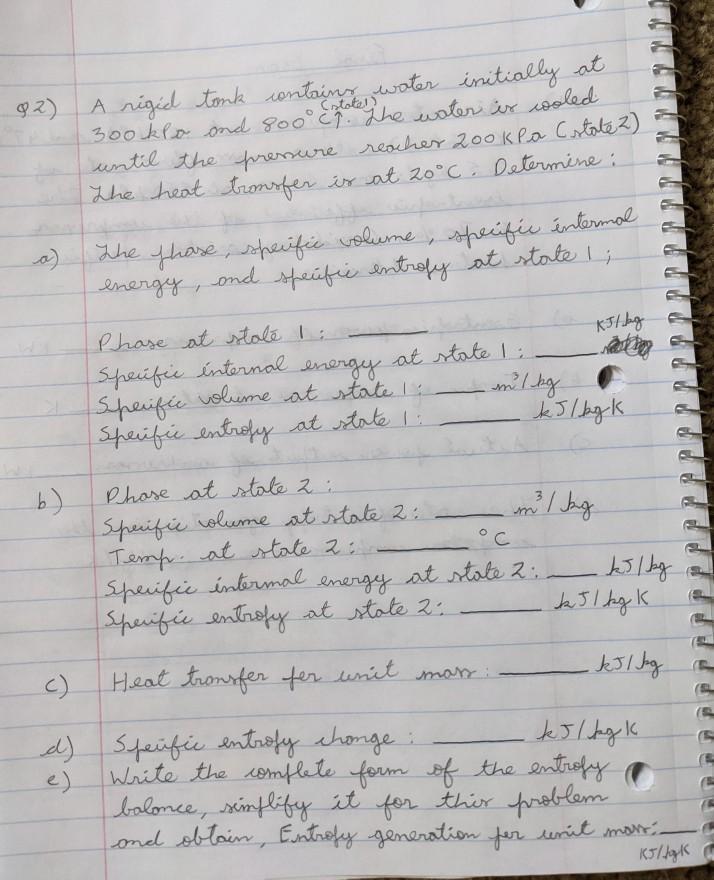 Q2) A rigid tank contains water initially at
300 kPa and 800°C (state1)↑. The water is cooled
until the pressure reaches 200 KPa (state2)
The heat transfer is at 20°C. Determine:
a) The phase, specific volume, specific internal
energy, and specific entropy at state 1;
Phase at state 1: ____
Specific internal energy at state 1: ____ KJ/kg
Specific volume at state 1: ____ m³/kg
Specific entropy at state 1: ____ kJ/kgK
b) Phase at state 2:
Specific volume at state 2: ____ m³/kg
Temp. at state 2: ____ °C
Specific internal energy at state 2: ____ kJ/kg
Specific entropy at state 2: ____ kJ/kgK
c) Heat transfer per unit mass: ____ kJ/kg
d) Specific entropy change: ____ kJ/kgK
e) Write the complete form of the entropy
balance, simplify it for this problem
and obtain, Entropy generation per unit mass: ____
KJ/kgK